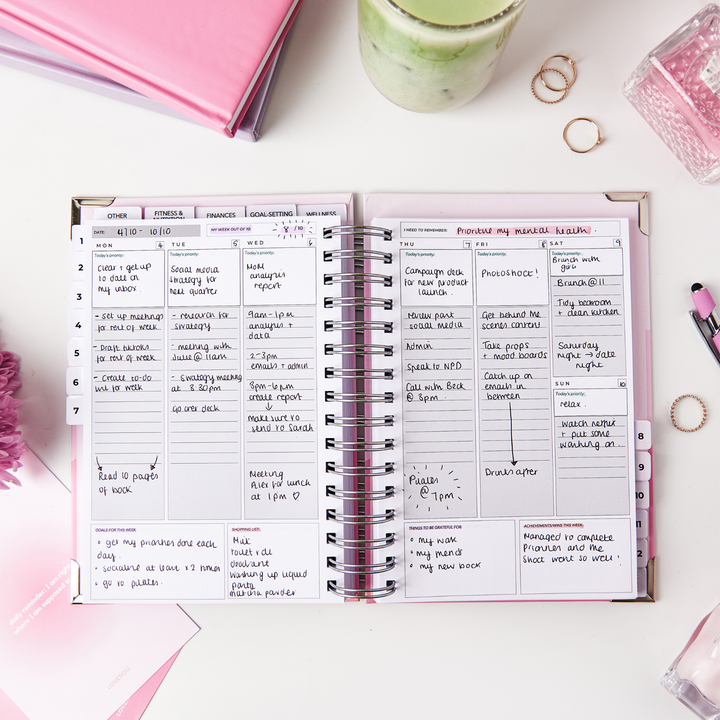 OTHER
FITNESS & NUTRITION
FINANCES
GOAL-SETTING
WELLNESS
DATE: 4/10 - 10/10
MY WEEK OUT OF 10 8 /10
1
2
3
4
5
6
7
MON 4
Today's priority:
Clear + get up
to date on
my inbox.
- set up meetings
for rest of week
- Draft tiktoks
for rest of week
- Create to-do
list for week
Read 10 pages
of book
TUE 5
Today's priority:
Social media
strategy for
next quarter
- research for
strategy
- meeting with
Julie @ 11am
- strategy meeting
at 3.30pm
Go over deck
WED 6
Today's priority:
MoM
analysis
report
9am-1pm
analysis +
data
2-3pm
emails + admin
3pm-6pm
create report
make sure to
send to Sarah
Meeting
Alex for lunch
at 1pm ♡
GOALS FOR THIS WEEK
• get my priorities done each
day.
• socialise at least x2 times
• go to pilates.
SHOPPING LIST:
Milk
toilet roll
deodorant
washing up liquid
pasta
matcha powder
I NEED TO REMEMBER: Prioritise my mental health.
THU 7
Today's priority:
Campaign deck
for new product
launch.
review past
social media
Admin
Speak to NPD
Call with Beck
@ 3pm
Pilates
@ 7pm
FRI 8
Today's priority:
PHOTOSHOOT!
Get behind the
scenes content
Take props
+ mood boards
Catch up on
emails in
between
Drinks after
SAT 9
Today's priority:
Brunch with
girls
Brunch @ 11
Tidy bedroom
+ clean kitchen
Saturday
night → date
night
SUN 10
Today's priority:
relax.
Watch netflix
+ put some
washing on.
THINGS TO BE GRATEFUL FOR
• my walk
• my friends
• my new book
ACHIEVEMENTS/WINS THIS WEEK:
Managed to complete
priorities and the
shoot went so well!
8
9
10
11
daily reminder: I am right
where I am supposed to